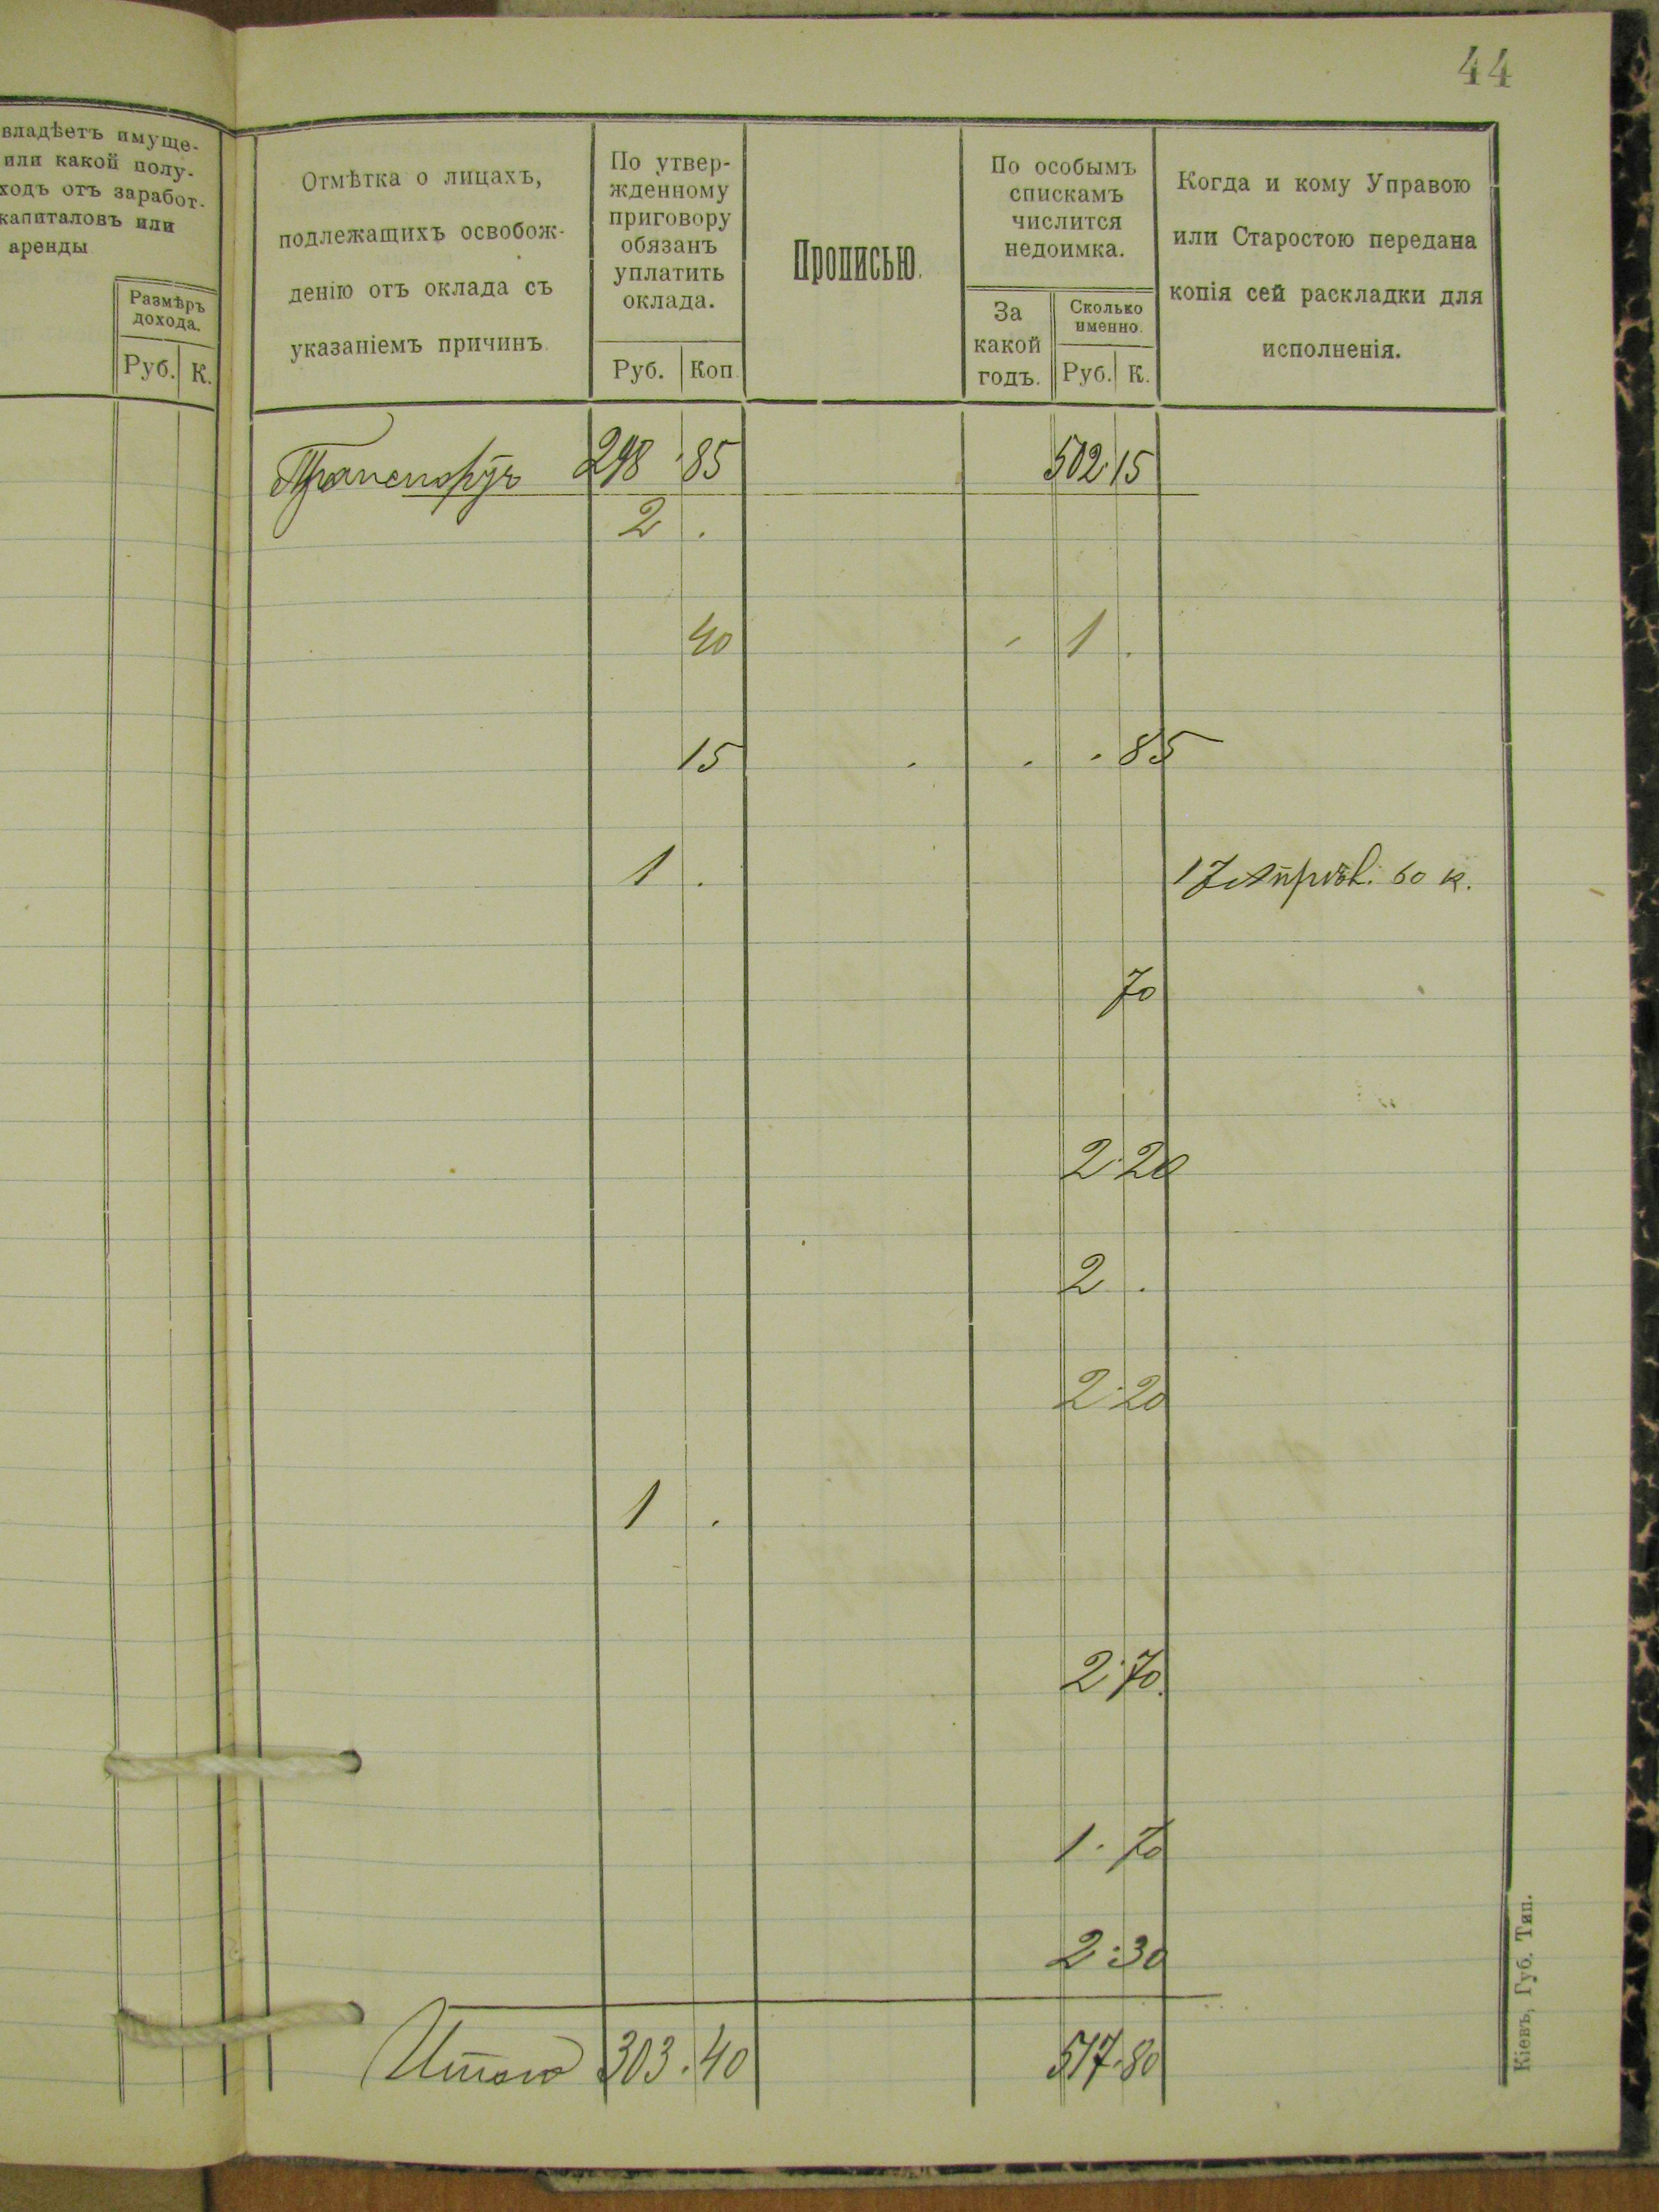 44
владѣетъ имуще-
или какой полу-
ходъ отъ заработ-
капиталовъ или
аренды
Размѣръ
дохода.
Руб. К.
Отмѣтка о лицахъ,
подлежащихъ освобож-
денію отъ оклада съ
указаніемъ причинъ
По утвер-
жденному
приговору
обязанъ
уплатить
оклада.
Руб. Коп.
Прописью.
По особымъ
спискамъ
числится
недоимка.
За
какой
годъ.
Сколько
именно.
Руб. К.
Когда и кому Управою
или Старостою передана
копія сей раскладки для
исполненія.
Транспортъ 298 85 502 15
2 .
40 1 .
15 . . . 85
1 . 17 Апрѣл. 60 к.
70
2 20
2 .
2 20
1 .
2 70
1 70
2 30
Итого 303 40 517 80
Кіевъ, Губ. Тип.